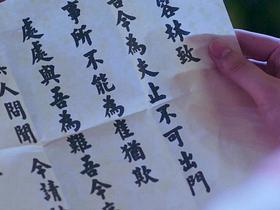 容林致
吾今為夫止不可出門
事所不能為崔猶欺
處處與吾為難吾今
人間聞令靖